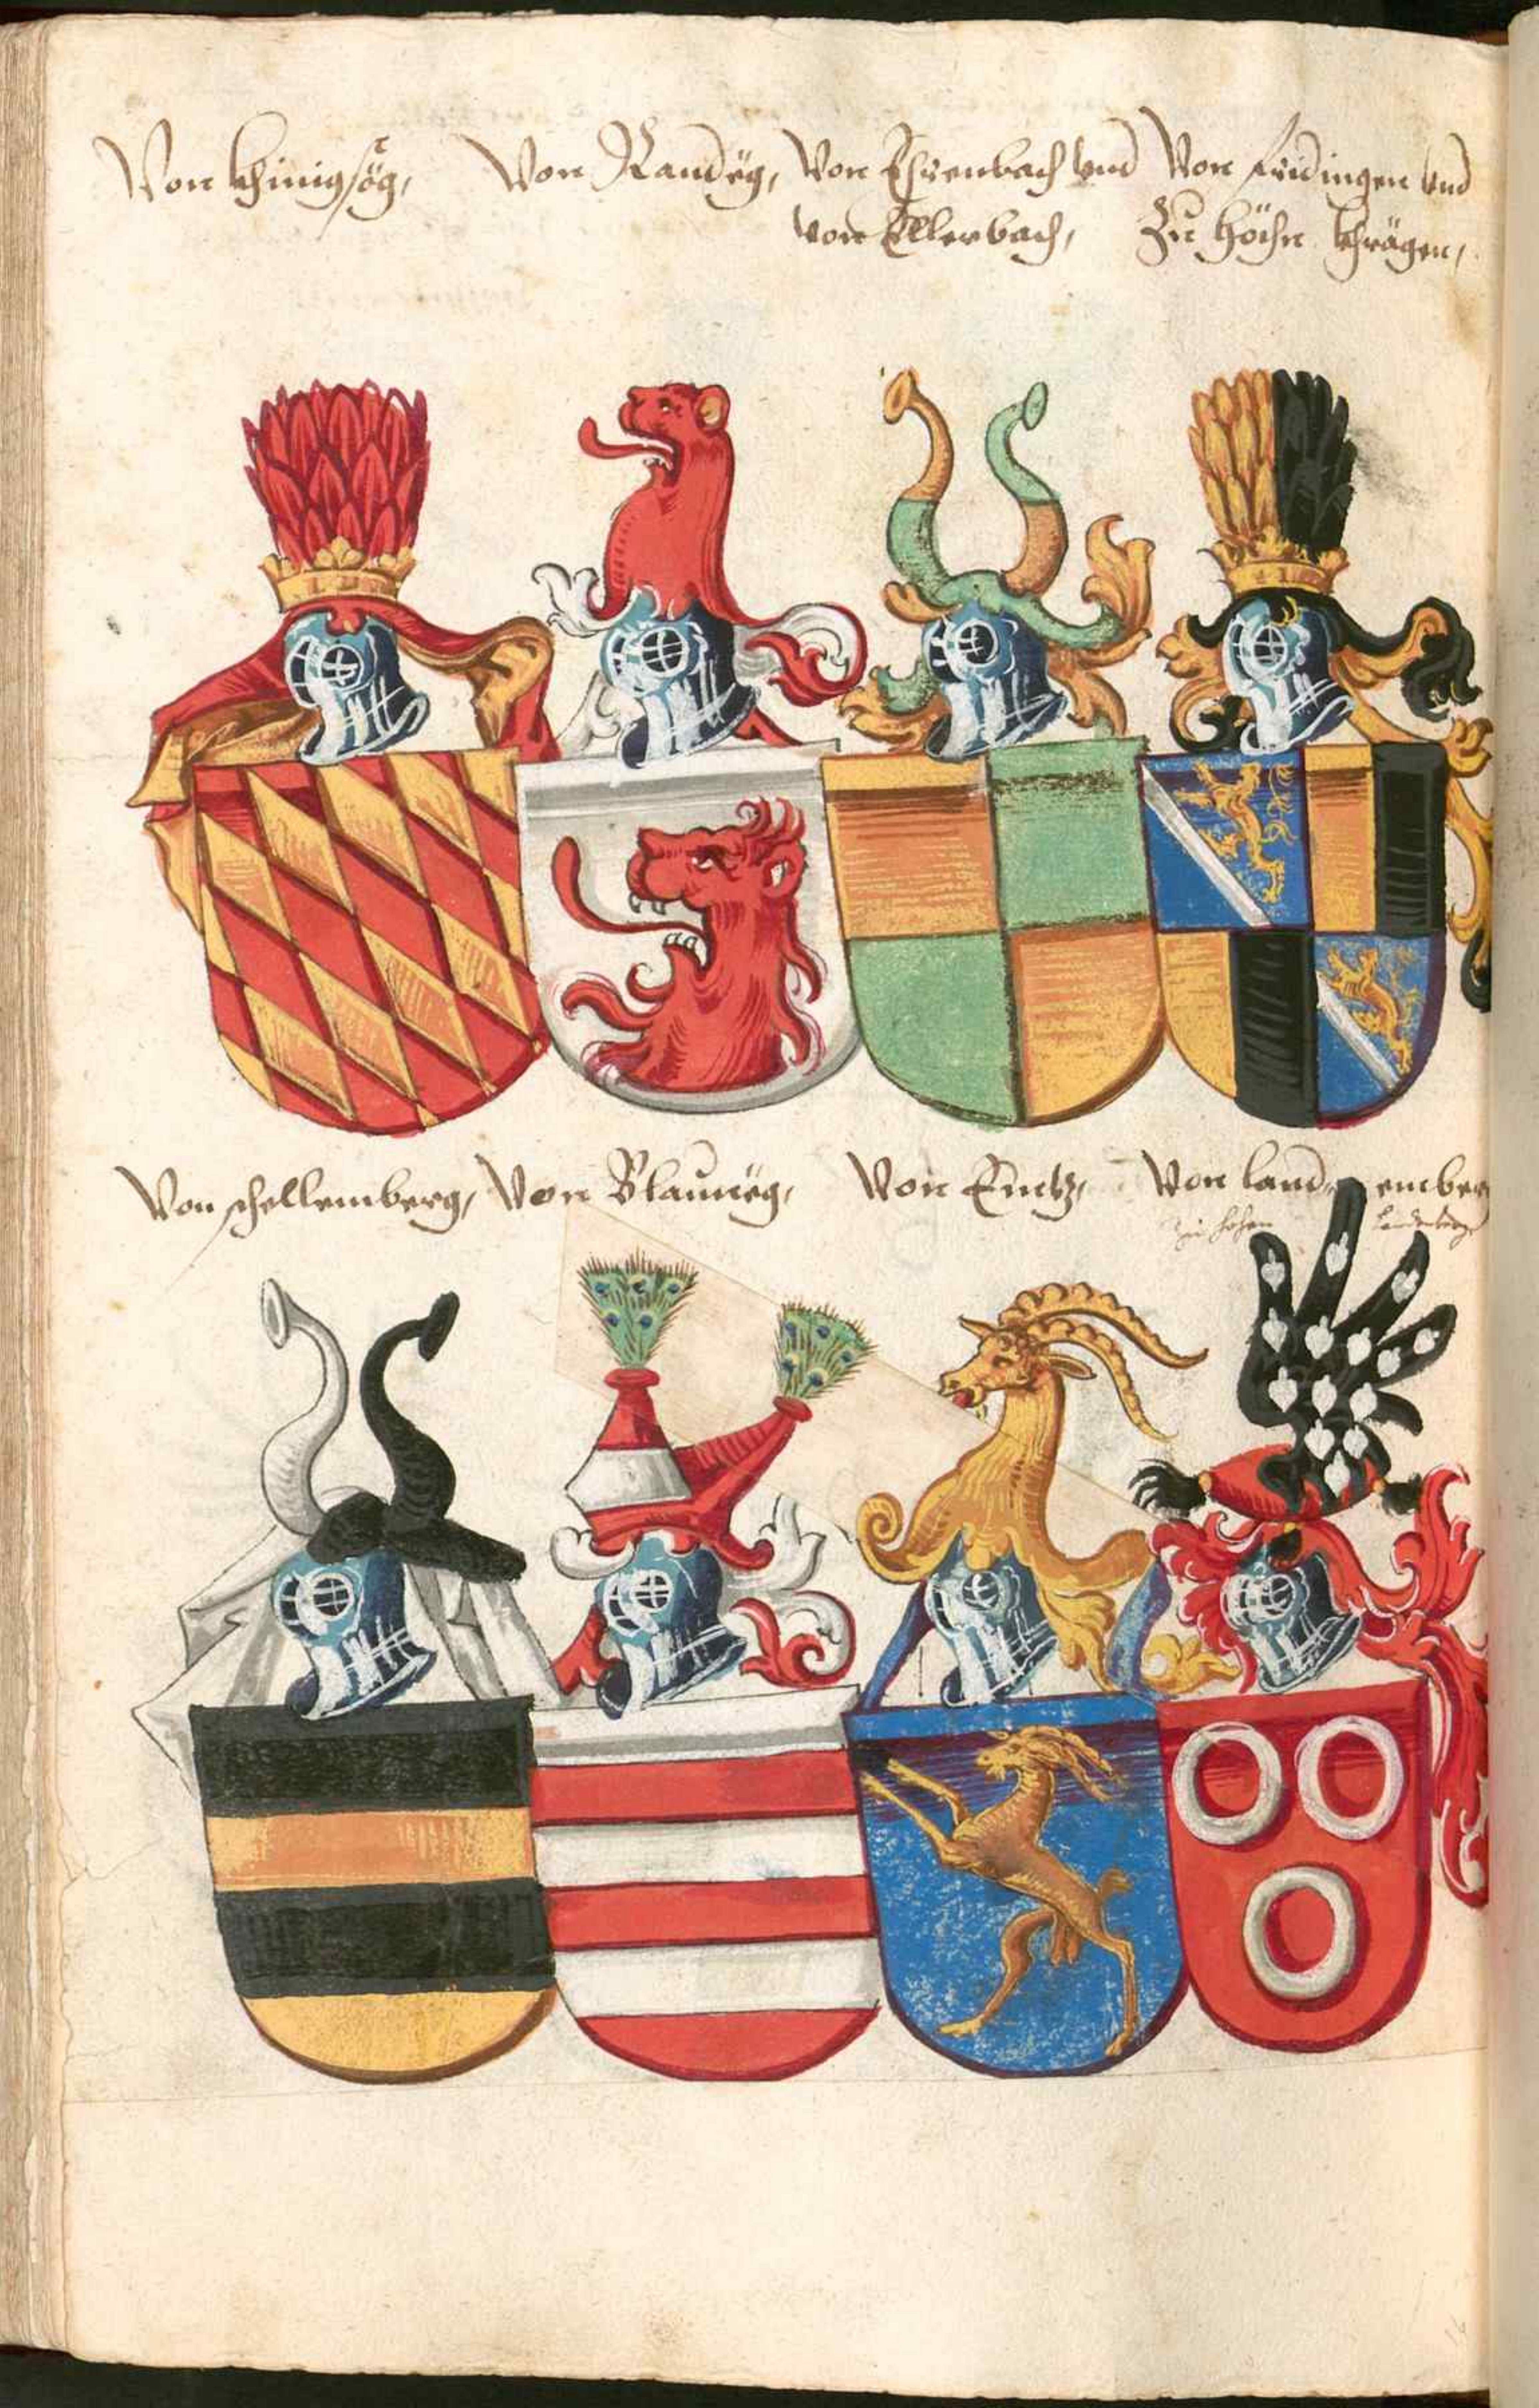 Von khinigsög,
Von Randëg,
Von Ehrenbach vnd
von Ellerbach,
Von fridingen vnd
Zu höchn khrägen,
Von schellemberg,
Von Blaumëg,
Von Emtz,
Von land emberg
zu hohen Landenberg